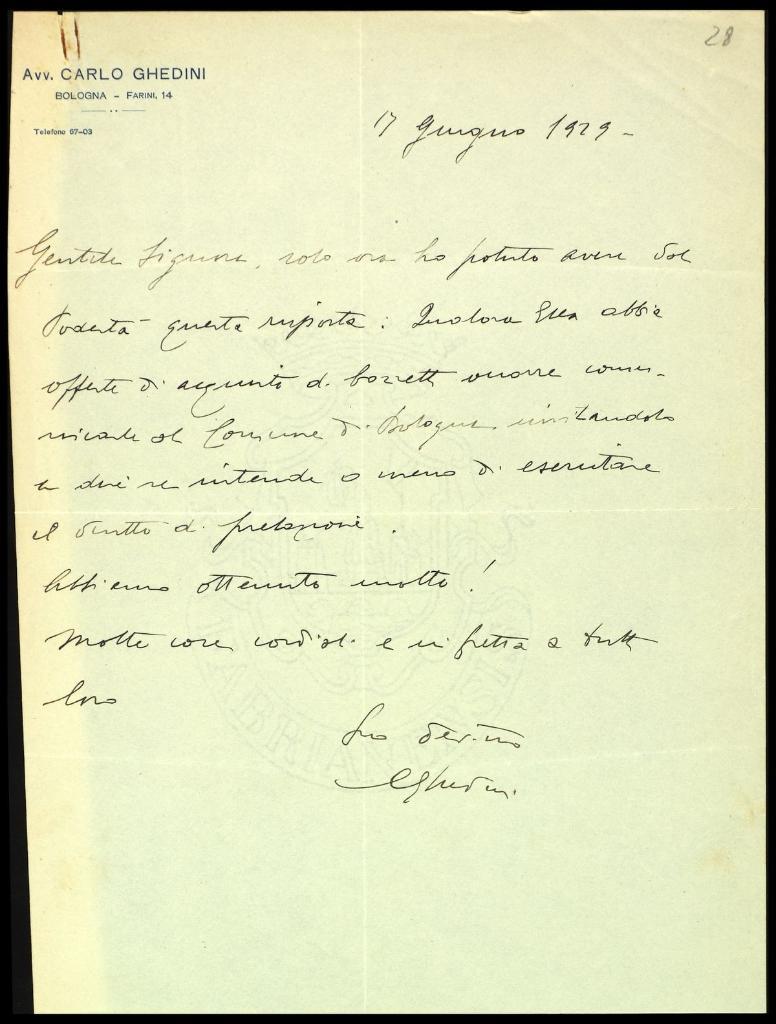 28
Avv. CARLO GHEDINI
BOLOGNA – FARINI, 14
Telefono 67-03
17 Giugno 1929 -
Gentile Signora, solo ora ho potuto avere dal
Podestà questa risposta: Qualora Ella abbia
offerte di acquisto di bozzetti occorre comu-
nicarle al Comune di Bologna invitandolo
a dire se intende o meno di esercitare
il diritto di prelazione.
Abbiamo ottenuto molto!
Molte cose cordiali e in fretta a tutti
loro
Suo dev.mo
CGhedini